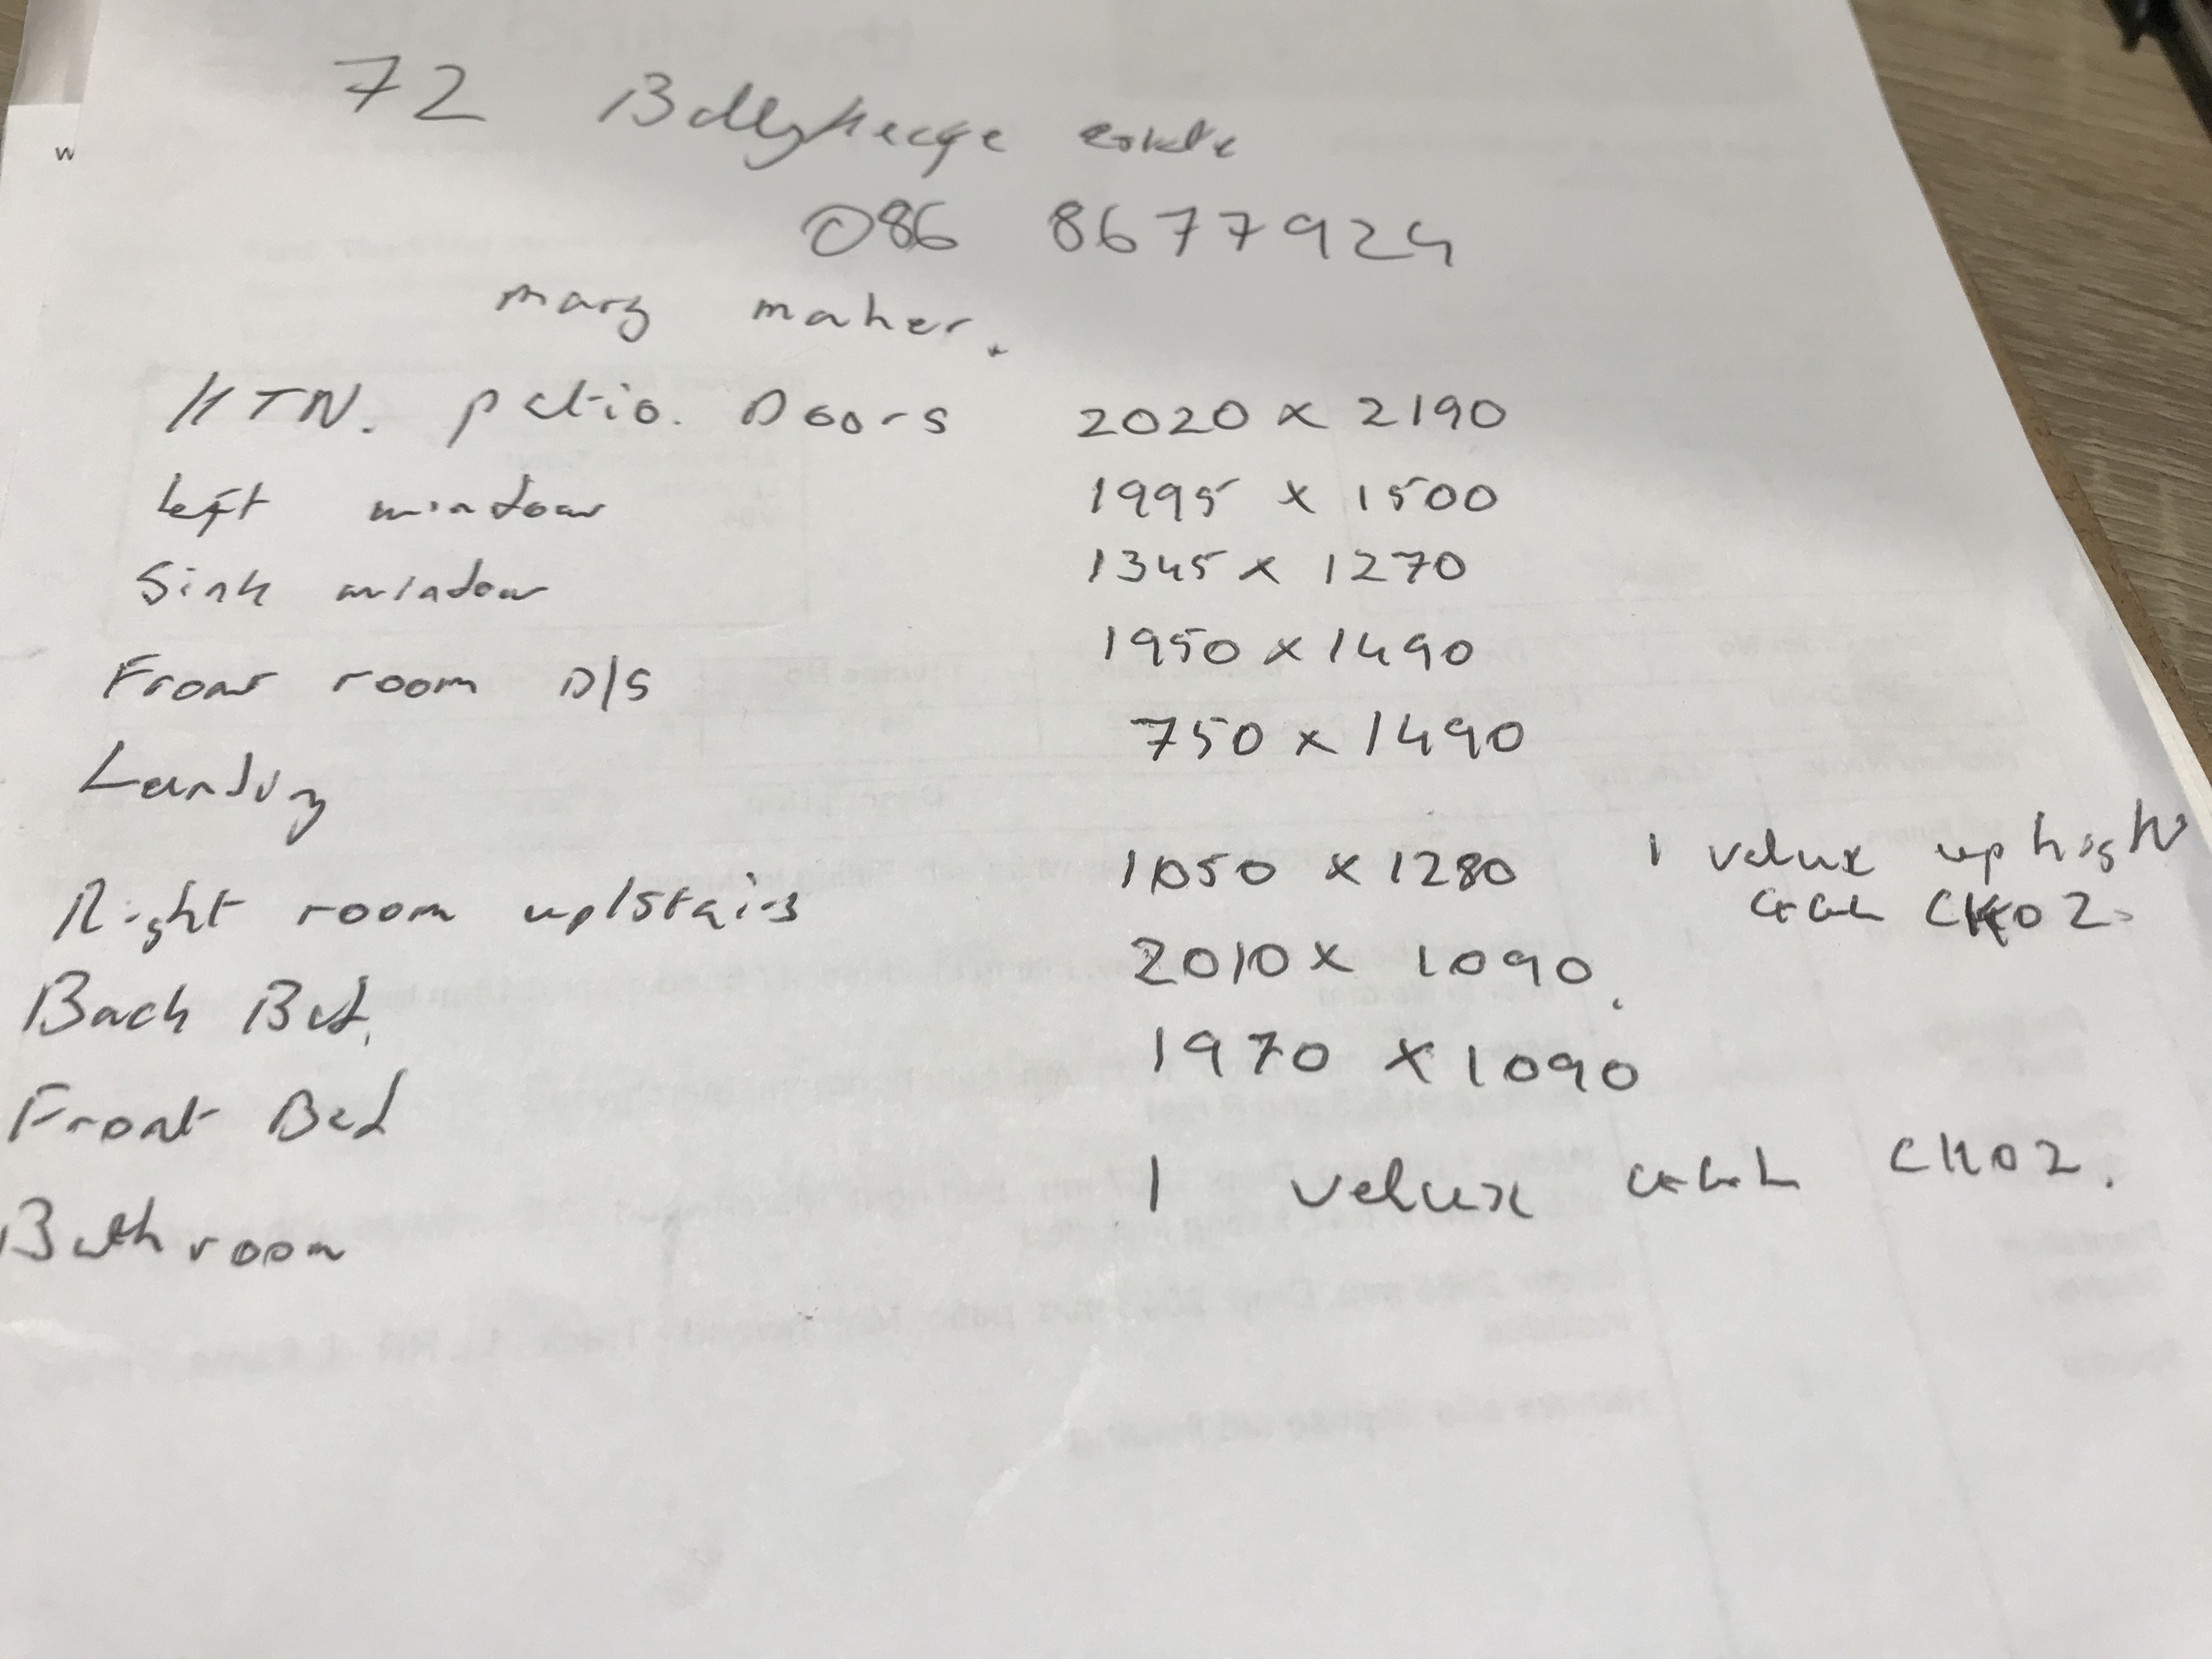 72 Ballyheege estate
086 8677924
mary maher.
KTN. patio. Doors 2020 x 2190
left window 1995 x 1500
Sink window 1345 x 1270
Front room D/S 1950 x 1490
Landing 750 x 1490
Right room up/stairs 1050 x 1280 1 velux up high
CK02.
Back Bed. 2010 x 1090.
Front Bed 1970 x 1090
Bathroom 1 velux CK02.